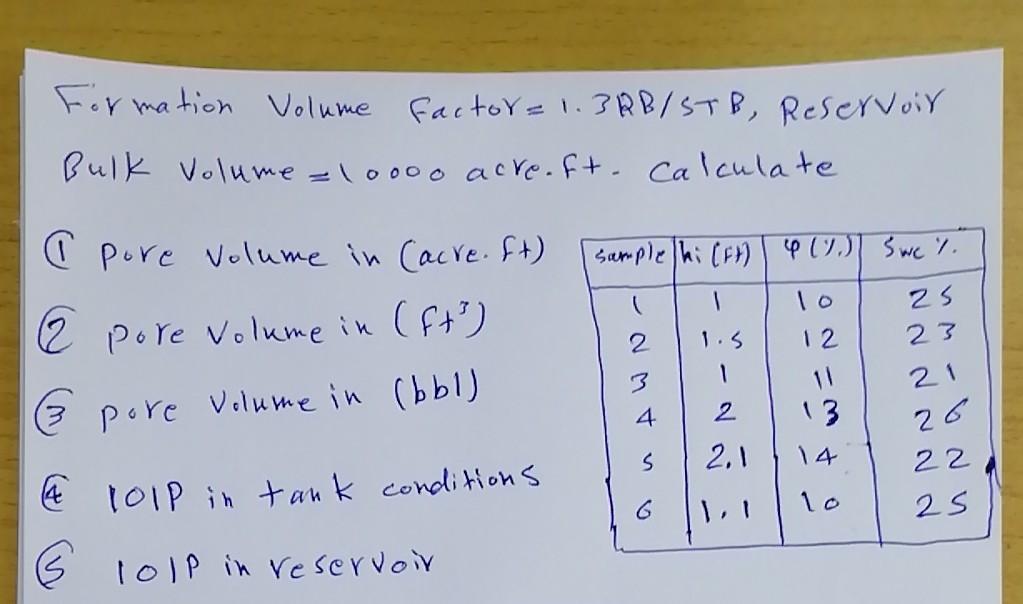 Formation Volume Factor = 1.3 RB/STB, Reservoir
Bulk Volume = 10000 acre.ft. Calculate
① Pore Volume in (acre.ft)
② pore Volume in (ft³)
③ pore Volume in (bbl)
④ IOIP in tank conditions
⑤ IOIP in reservoir
sample hi (ft) φ (%) Swc %
1 1 10 25
2 1.5 12 23
3 1 11 21
4 2 13 26
5 2.1 14 22
6 1.1 10 25